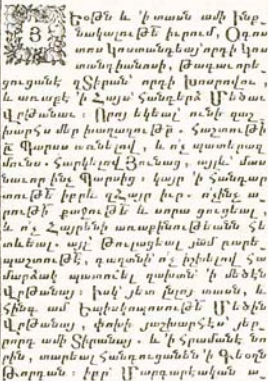 Յ Եօթն և ՛ի տասն ամի Ինք֊
նակալութե իւրում, Օգոս
տոս Կոստանդեայ որդի Կոս
տանդիանոսի, Թագաւորե֊
ցուցանէ զՏիրան՝ որդի Խոսրովու,
և առաքէ ՛ի Հայս՝ հանդերձ Մեծաւ
Վրթանաւ։ Որոյ եկեալ՝ ունի զաշ֊
խարհս մեր խաղաղութբ․ հաշտութի
ընդ Պարսս առնելով, և ոչ պատերազ
մունս․ հարկելով Յունաց, այլև՝ մաս
նաւոր ինչ Պարսից․ կայր ՛ի հանդար
տութե իբրև զՀայր իւր․ ոչինչ ա֊
րութի քաջութե և սորա ցուցեալ,
և ոչ Հայրենի առաքինութեանն հե
տևեալ․ այլ՝ թուլացեալ յամ բարե֊
պաշտութէ, գաղտնի՝ ոչ իշխելով հա
մարձակ պատուել զախտն՝ ՛ի մեծէն
Վրթանայ։ Իսկ՝ յետ ընդոյ տասն, և
հինգ ամ Եպիսկոպոսութե Մեծին
Վրթանայ, փոխի յաշխարհէս՝ յեր֊
րորդ ամի Տիրանայ․ և ՛ի հրամանէ նո
րին, տարեալ հանգուցանեն ՛ի գեօղն
Թորդան։ իբր՝ Մարգարէական ա֊